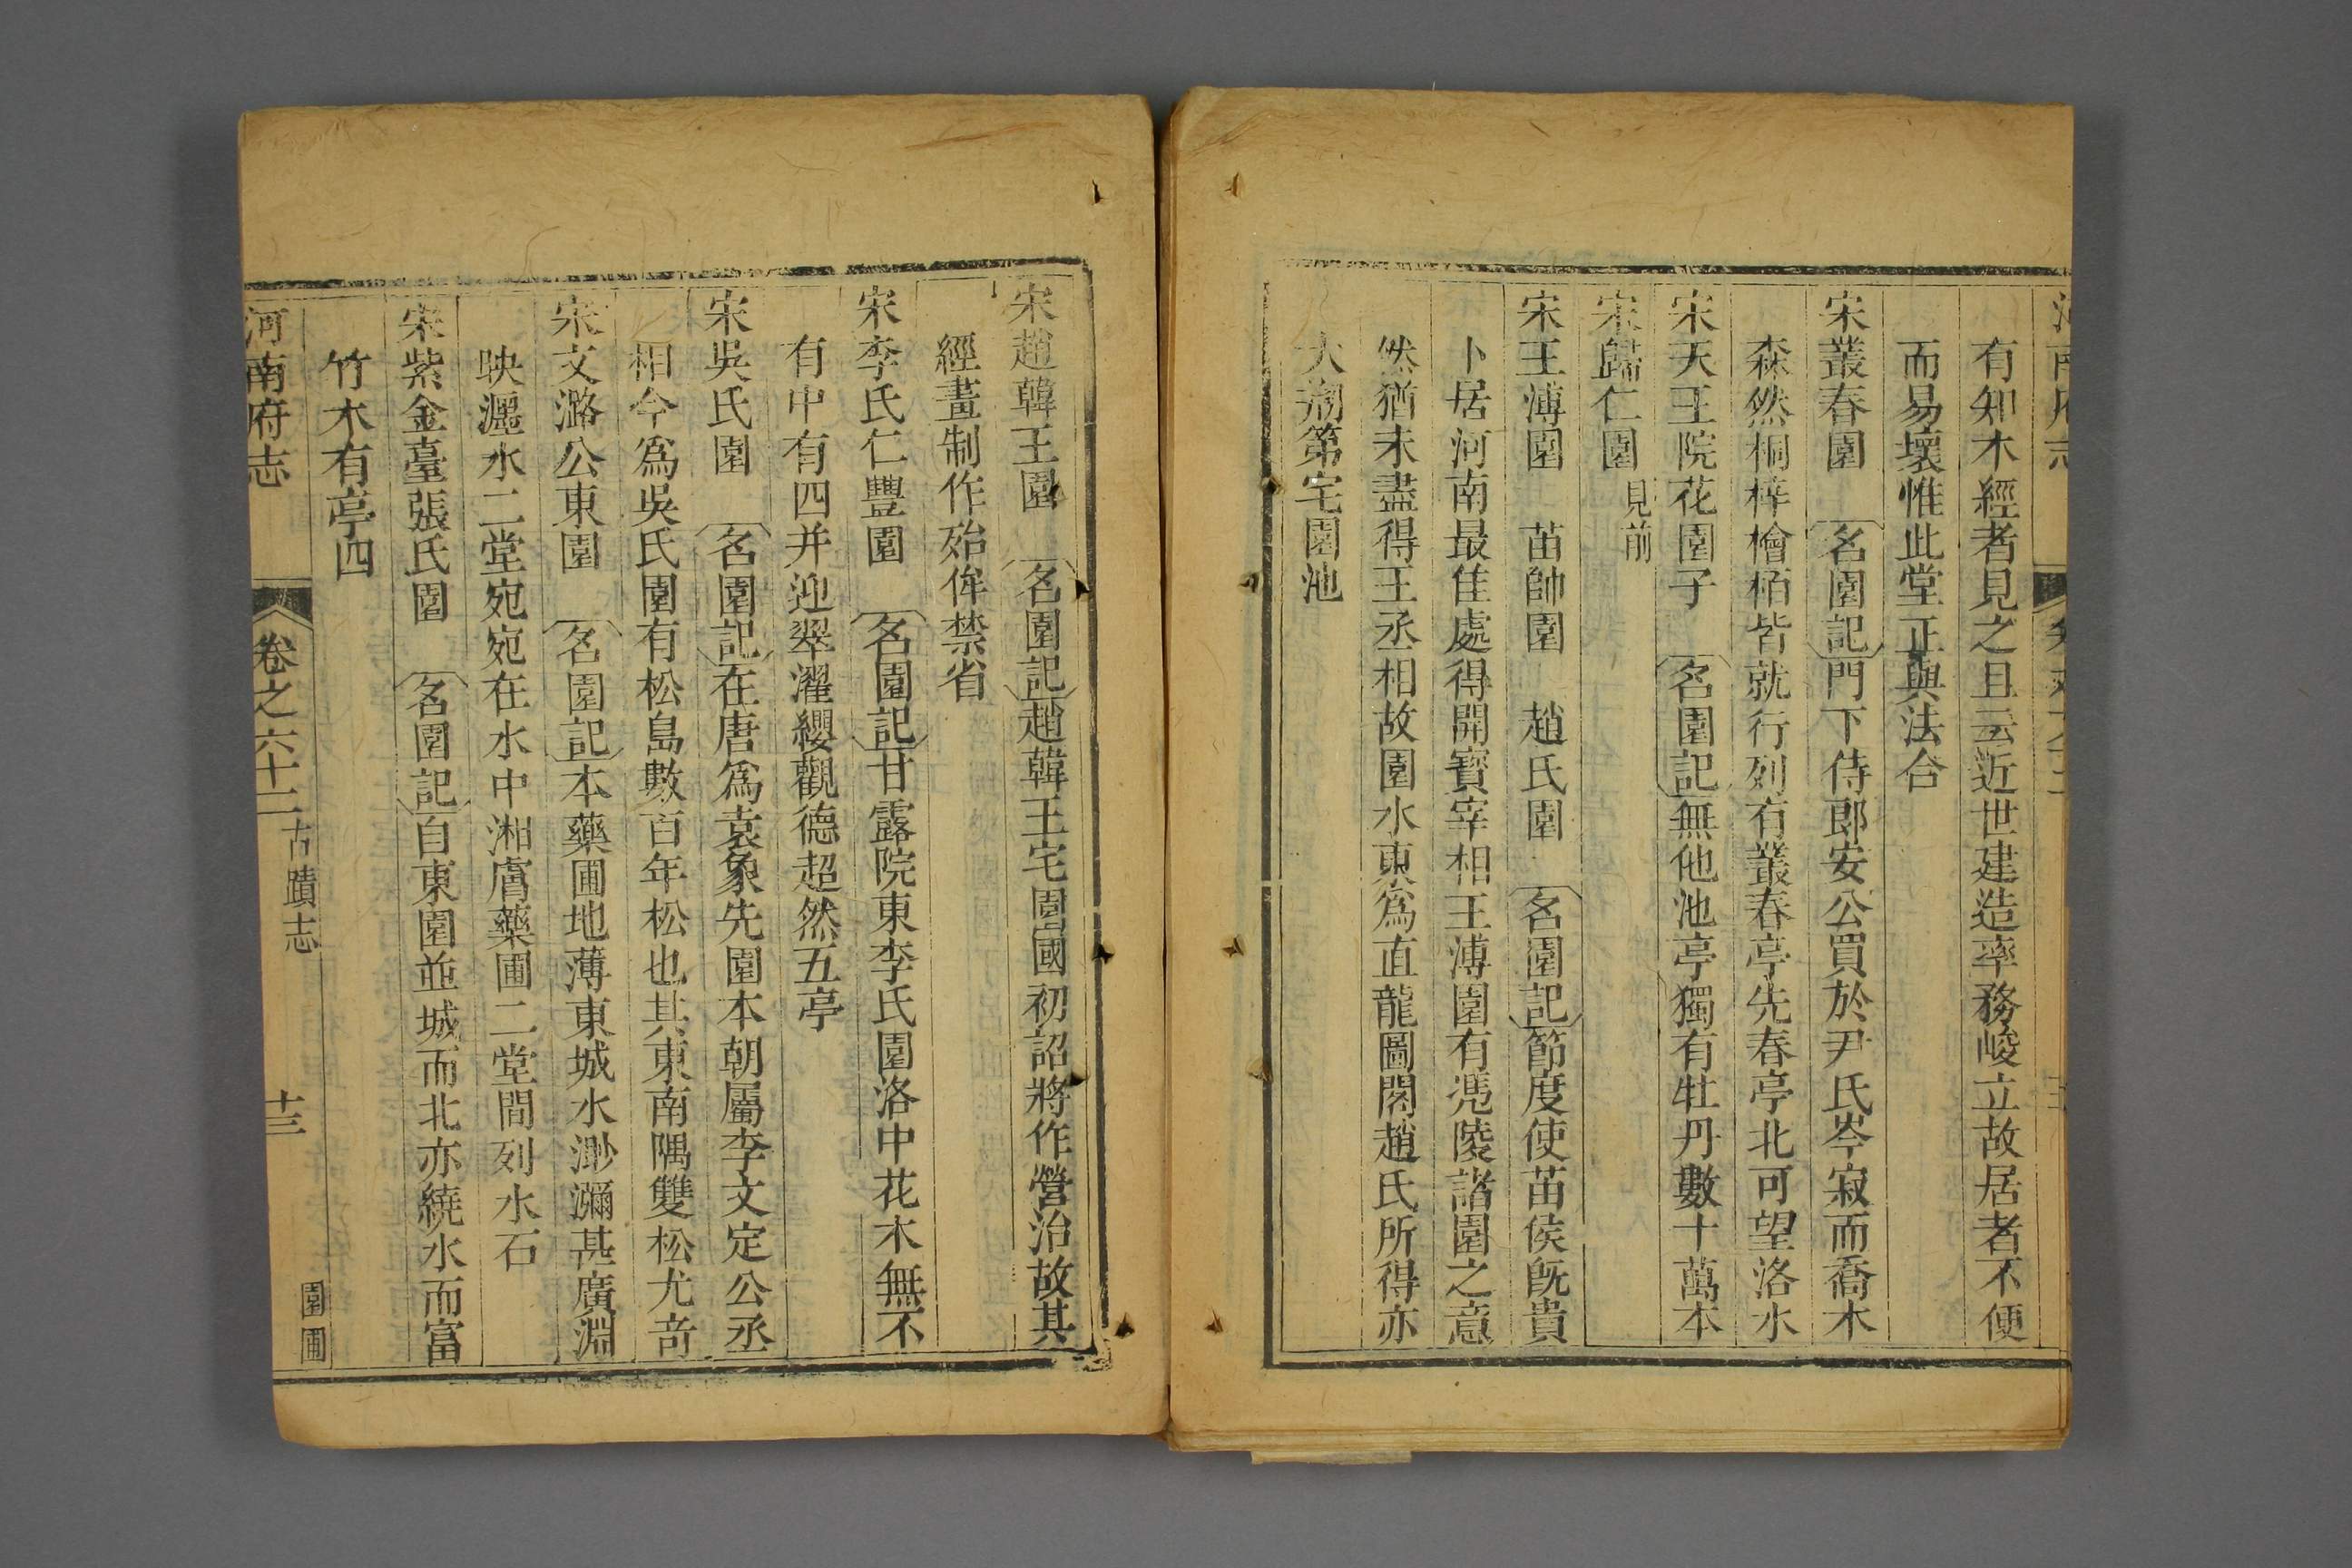 有知木經者見之且云近世建造率務峻立故居者不便
而易壞惟此堂正與法合
宋叢春園 名園記門下侍郎安公買於尹氏岑寂而喬木
森然桐梓檜栢皆就行列有叢春亭先春亭北可望洛水
宋天王院花園子 名園記無他池亭獨有牡丹數十萬本
宋歸仁園 見前
宋王溥園 苗帥園 趙氏園 名園記節度使苗侯旣貴
卜居河南最佳處得開寶宰相王溥園有慿陵諸園之意
然猶未盡得王丞相故園水東為直龍圖閣趙氏所得亦
大剏第宅園池
宋趙韓王園 名園記趙韓王宅園國初詔將作營治故其
經畫制作殆侔禁省
宋李氏仁豐園 名園記甘露院東李氏園洛中花木無不
有中有四并迎翠濯纓觀德超然五亭
宋吳氏園 名園記在唐爲袁象先園本朝屬李文定公丞
相今爲吳氏園有松島數百年松也其東南隅雙松尤奇
宋文潞公東園 名園記本藥圃地薄東城水渺瀰甚廣淵
映瀍水二堂宛宛在水中湘膚藥圃二堂間列水石
宋紫金臺張氏園 名園記自東園並城而北亦繞水而富
竹木有亭四
河南府志 卷之六十二 古蹟志 十三 園圃